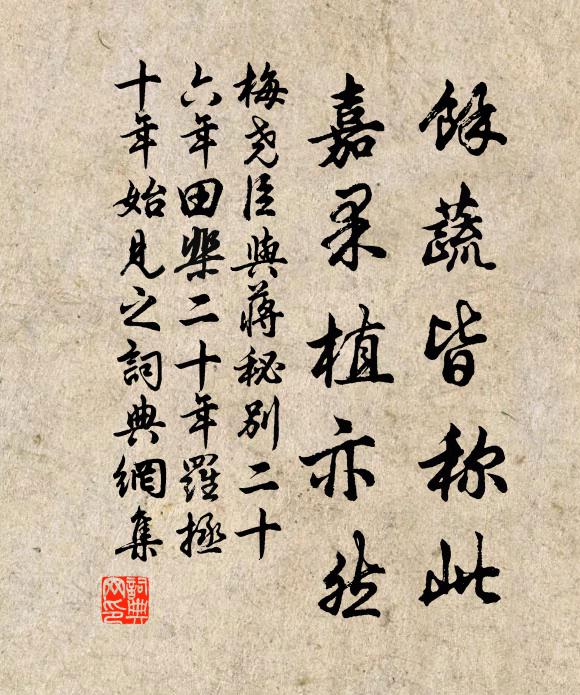 餘蔬皆称此
嘉果植亦然
梅尧臣與蔣秘別二十
六年田棐二十年羅拯
十年始見之詞典網集
詞典网印